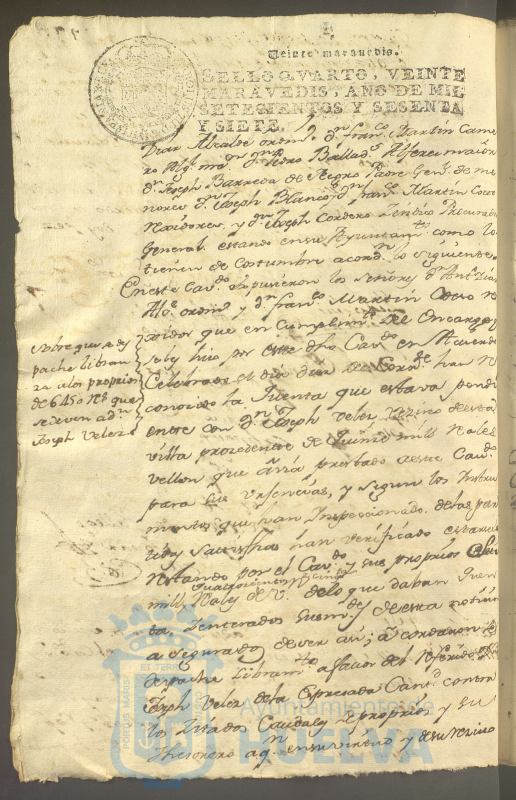 Veinte maravedis.
SELLO QVARTO, VEINTE
MARAVEDIS, AÑO DE MIL
SETECIENTOS Y SESENTA
Y SIETE.
Diaz Alcalde ordin.º Dn. franco. Martin Came
ro Alg.l Dn. Pedro Ballad.s Alferez maior
Dn. Joseph Barreda de Negro Padre Genl. de me
nores Dn. Joseph Blanco, Dn. franco. Martin Coco
Rexidores, y Dn. Joseph Cordero Sindico Procurador
General estando en su Ayuntamto. como lo
tienen de Costumbre acordn. lo siguiente
En este Cavdo. expusieron los Señores Dn. Anto. Diaz
Alce. ordino. y Dn. franco. Martin Coco re
xidor que en Cumplimto. del Encargo q
se les hizo por este dho Cavdo. en Acuerdo
Celebrado el dia diez del Corrte. han re
conocido la Quenta que estava pendi
ente con Dn. Joseph Velez vezino de esta
villa prozedente de quinze mill Reales
vellon que avia prestado a este Cavdo.
para sus Urgencias, y segun los Instru
mentos que han Inspeccionado de las par
tidas satisfhas han verificado estarse
Restando por el Cavdo. y sus proprios seis
mill quatrocientos y cinqta. Rales de v. de lo que daban quen
ta, y enterados sus mrds. de esta noticia
asegurados de ser asi; acordaron se
despache Libramto. a favor del Referido Dn.
Joseph Velez de la Expresada Cantd. contra
los Citados Caudales de proprios, y su
Thesorero
Sobre que se des
pache libran
za a los proprios
de 6450 Rs. que
se deven a Dn.
Joseph Velez
PORTUS MARIS
ET TERRÆ
Ayuntamiento de
HUELVA